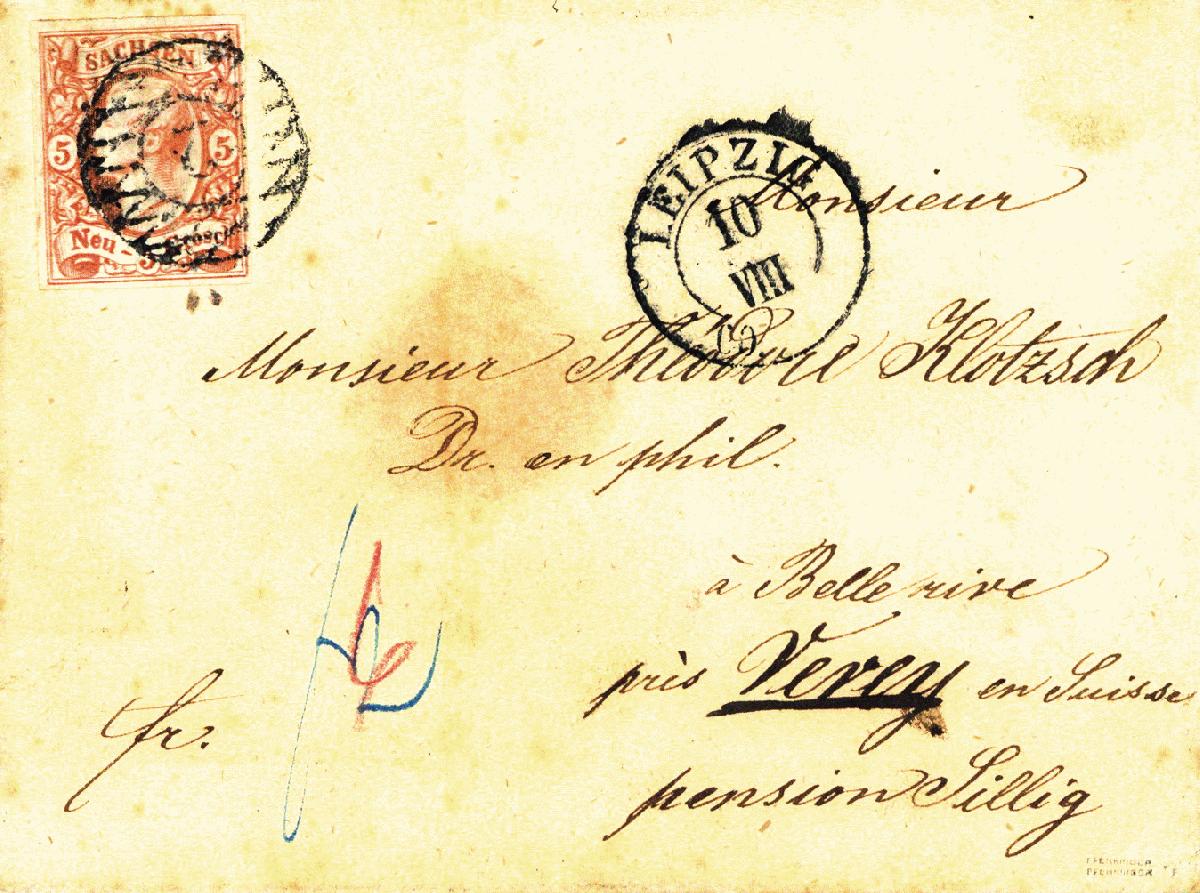 SACHSEN
5 5
Neu-Groschen
LEIPZIG
10
VIII
Monsieur
Monsieur Theodore Klotzsch
Dr. en phil.
à Bellerive
près Vevey en Suisse
fr.
pension Sillig